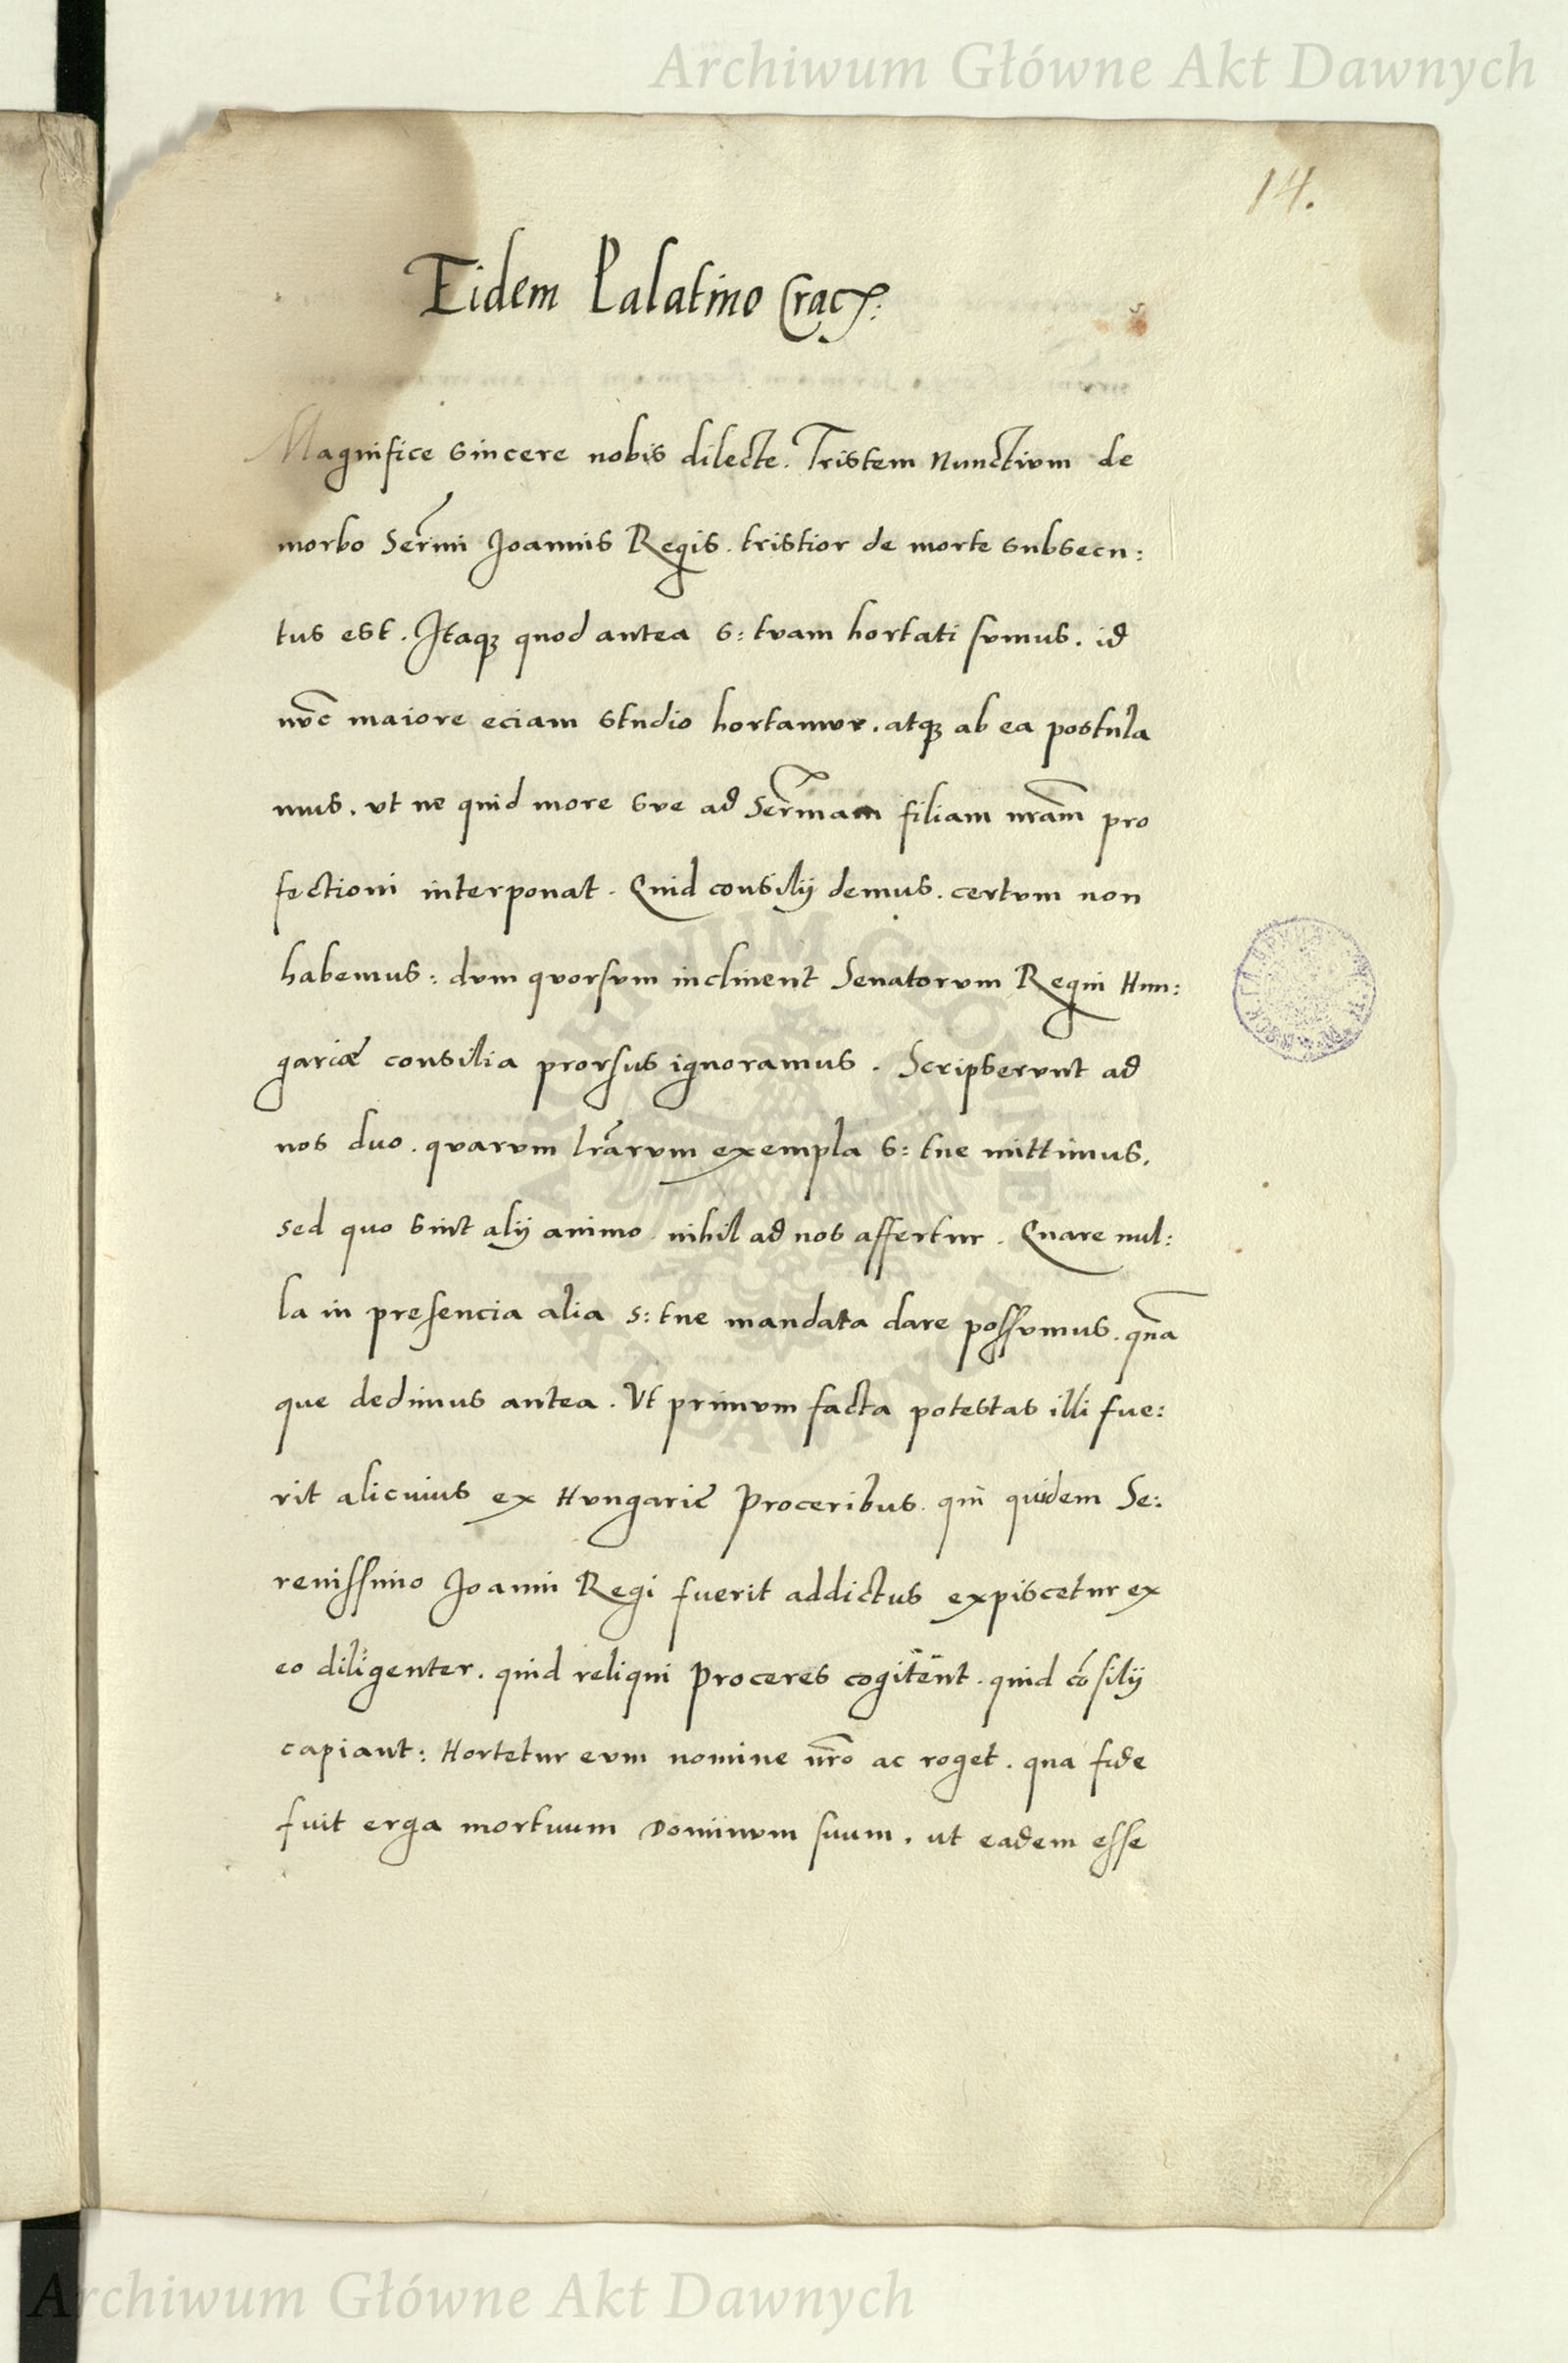 Archiwum Główne Akt Dawnych
14.
Eidem Palatino Crac:
Magnifice sincere nobis dilecte. Tristem Nunctivm de
morbo Sermi Joannis Regis. tristior de morte subsecu:
tus est. Itaqꝫ quod antea s: tvam hortati svmus. id
nvc maiore eciam studio hortamvr. atqꝫ ab ea postula
mus. vt ne quid more sve ad Sermam filiam nram pro
fectioni interponat. Quid consilij demus. certvm non
habemus: dvm qvorsvm inclinent Senatorvm Regni Hun:
gariæ consilia prorsus ignoramus. Scripservnt ad
nos duo. qvarvm lrarvm exempla s: tue mittimus.
sed quo sint alij animo nihil ad nos affertur. Quare nul:
la in presencia alia s: tue mandata dare possvmus. qua
que dedimus antea. Vt primvm facta potestas illi fue:
rit alicuius ex Hvngarie Proceribus. qui quidem Se:
renissimo Joanni Regi fuerit addictus expiscetur ex
eo diligenter. quid reliqui Proceres cogitent. quid cosilij
capiant: Hortetur evm nomine nro ac roget. qua fide
fuit erga mortuum Dominvm suum. ut eadem esse
ARCHIWUM GŁÓWNE
AKT DAWNYCH
Archiwum Główne Akt Dawnych